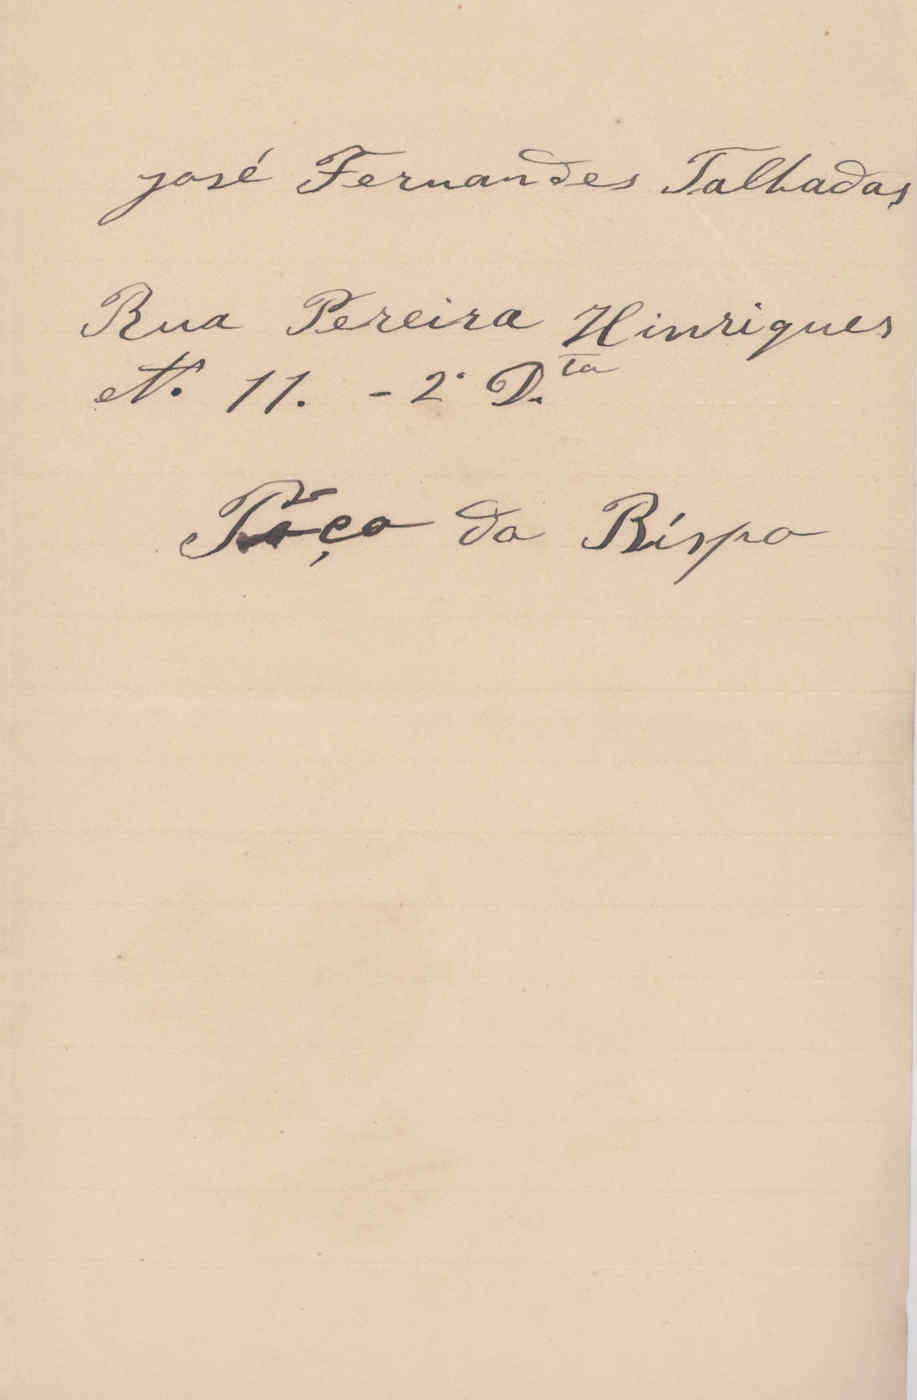 José Fernandes Talhadas
Rua Pereira Hinriques
Nº 11. - 2º D.ta
Poço do Bispo